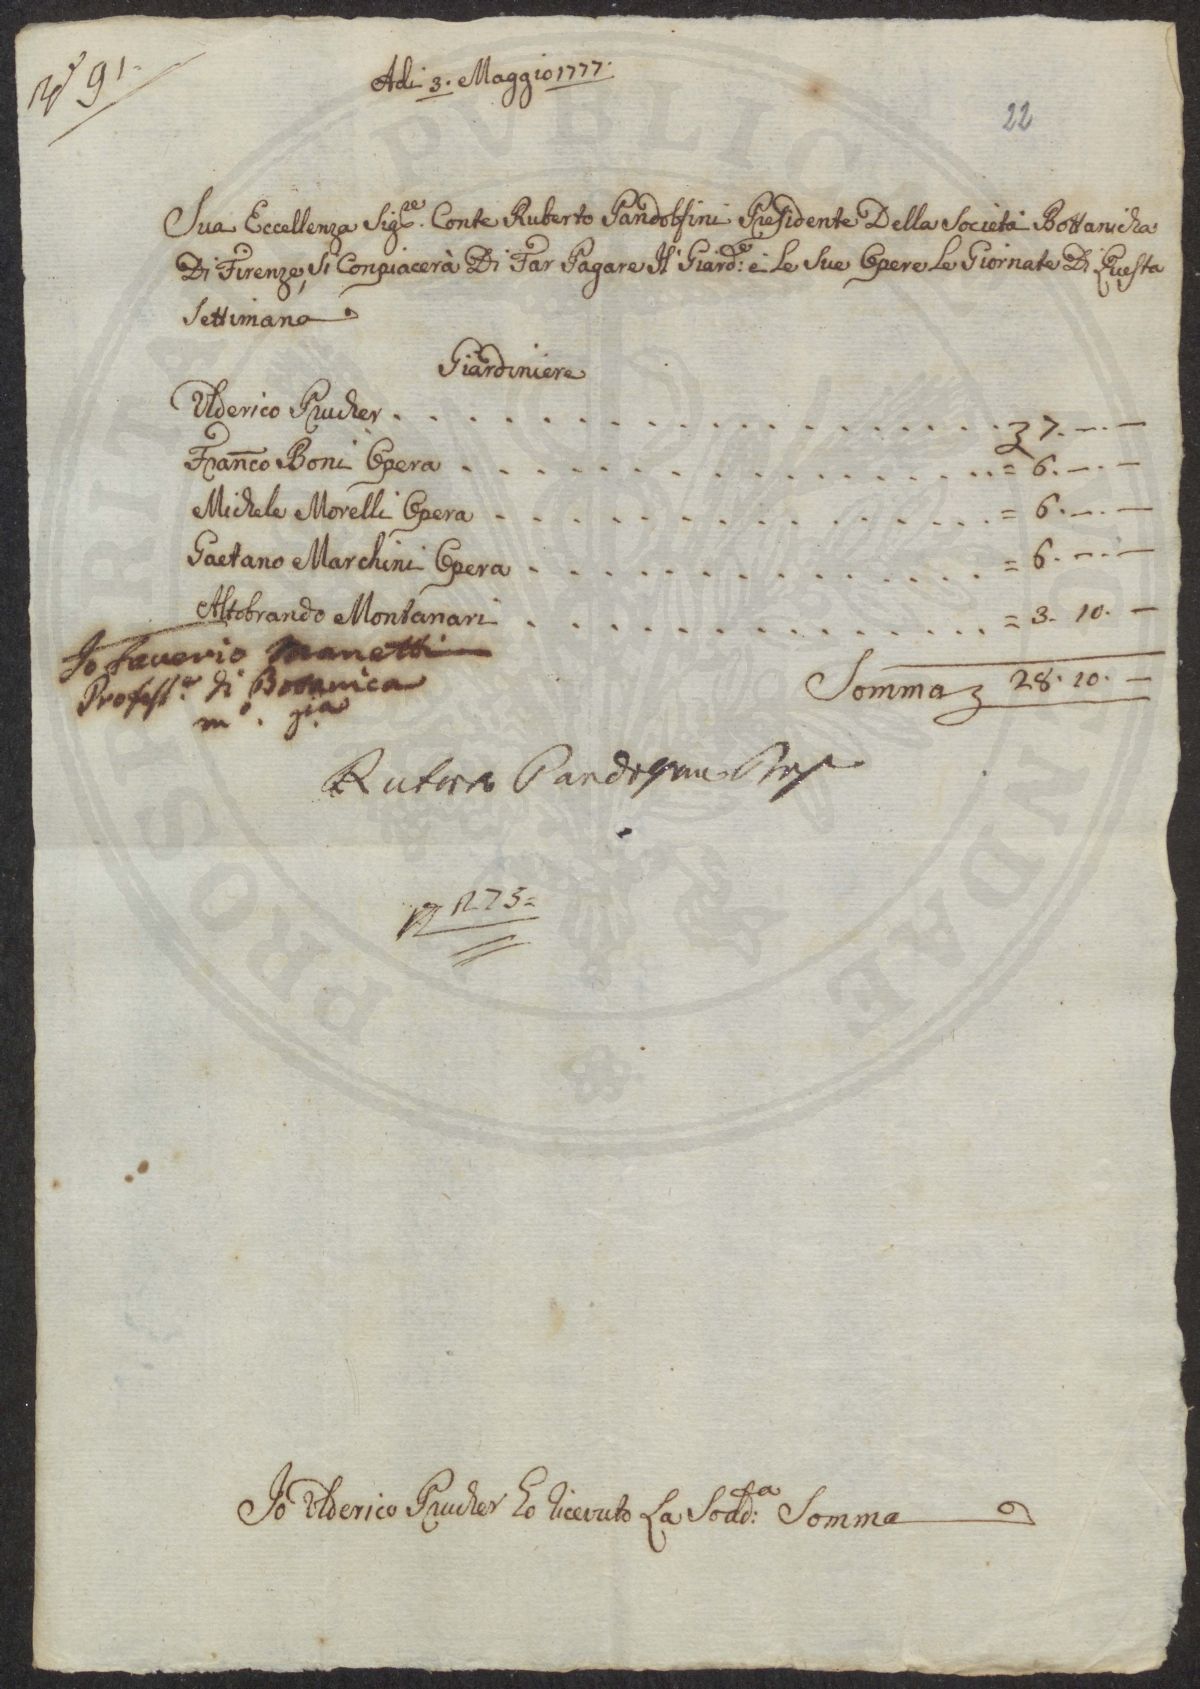 N° 91.
Adi 3. Maggio 1777.
22
Sua Eccellenza Sig.re Conte Ruberto Pandolfini Presidente Della Società Bottanicha
Di Firenze, Si Conpiacerà Di Far Pagare Il Giard:e e Le Sue Opere Le Giornate Di Questa
Settimana
Giardiniere
Ulderico Prucher . . . . . . . . . . . . . . . 7. —. —
Fran̅co Boni Opera . . . . . . . . . . . . . = 6. —. —
Michele Morelli Opera . . . . . . . . . . . . = 6. —. —
Gaetano Marchini Opera . . . . . . . . . . . = 6. —. —
Altobrando Montanari . . . . . . . . . . . = 3. 10. —
Io Saverio Manetti
Profess.e di Botanica
m.o p.ia
Somma 28. 10. —
Ruberto Pandolfini Pres
1275=
Io Ulderico Prucher ho ricevuto La Sodd:a Somma
PROSPERITATI PVBLICAE AVGENDAE